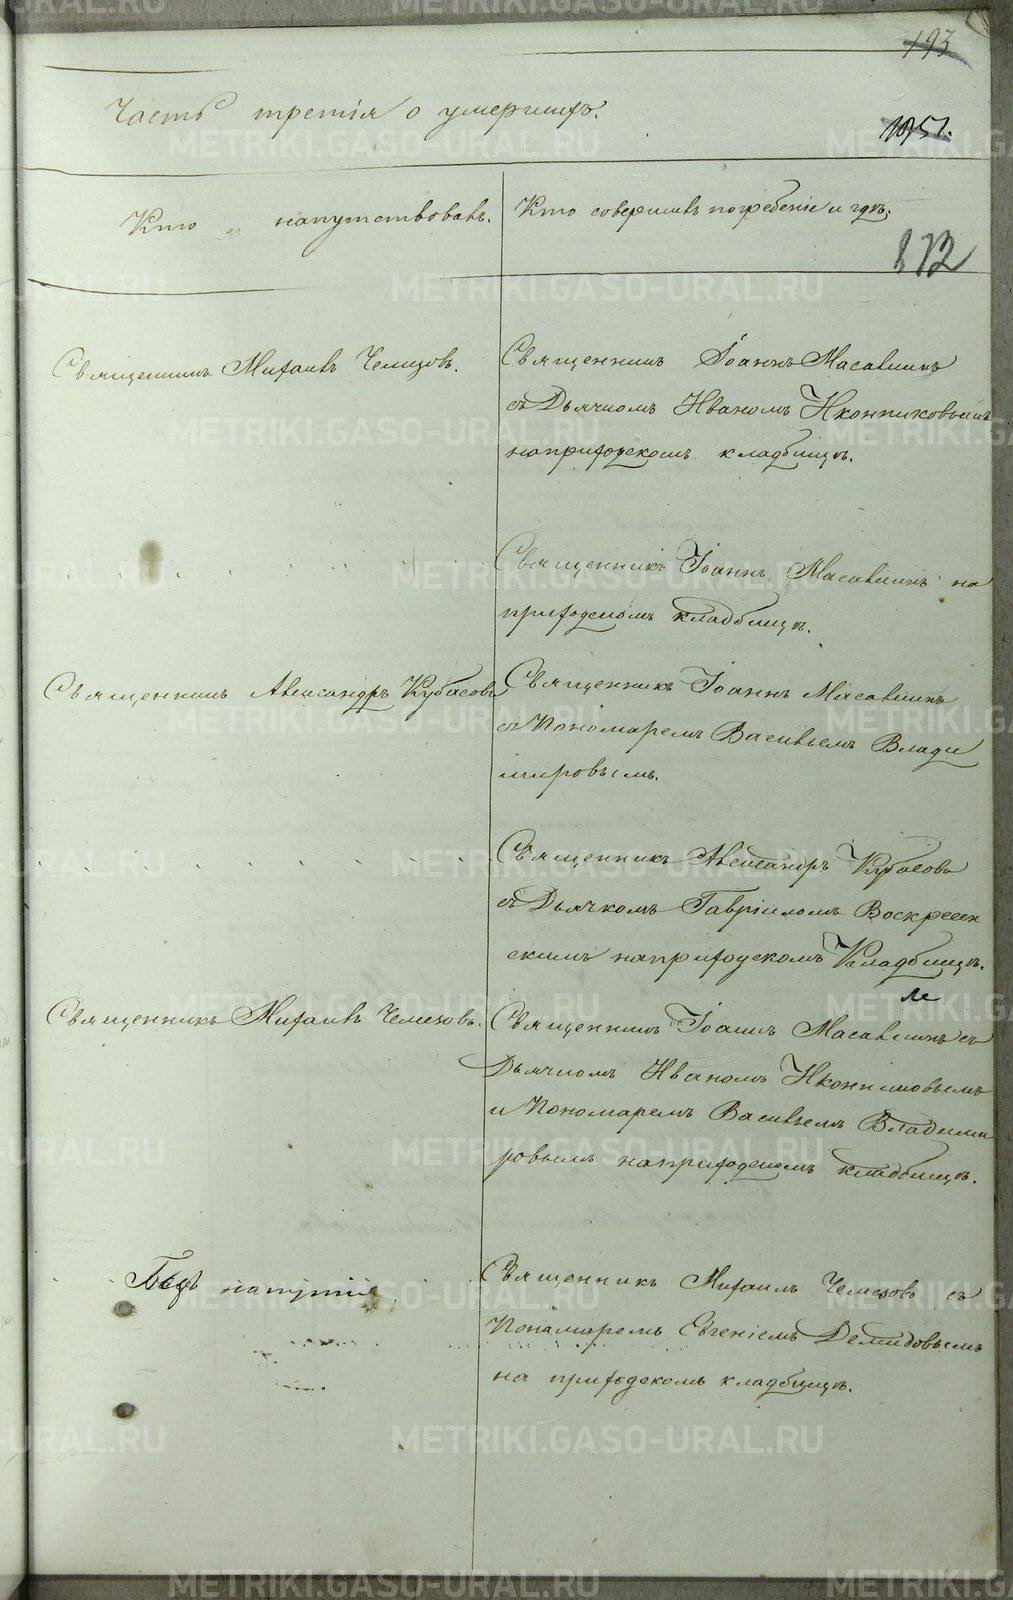 193
Часть третія о умершихъ.
1051.
Кто напутствовалъ.
Кто совершилъ погребеніе и гдѣ.
172
Священникъ Михаилъ Чемезовъ.
Священникъ Іоаннъ Масавкинъ
съ Дьячкомъ Иваномъ Иконниковымъ
на приходскомъ кладбищѣ.
Священникъ Іоаннъ Масавкинъ на
приходскомъ кладбищѣ.
Священникъ Александръ Кубасовъ
Священникъ Іоаннъ Масавкинъ
съ Пономаремъ Васильемъ Влади
мировымъ.
Священникъ Александръ Кубасовъ
съ Дьячкомъ Гавріиломъ Воскресен
скимъ на приходскомъ Кладбищѣ.
Священникъ Михаилъ Чемезовъ.
Священникъ Іоаннъ Масавкинъ съ
Дьячкомъ Иваномъ Иконниковымъ
и Пономаремъ Васильемъ Владими
ровымъ на приходскомъ кладбищѣ.
Безъ напутія
Священникъ Михаилъ Чемезовъ съ
Понамаремъ Евгеніемъ Демидовымъ
на приходскомъ кладбищѣ.
METRIKI.GASO-URAL.RU